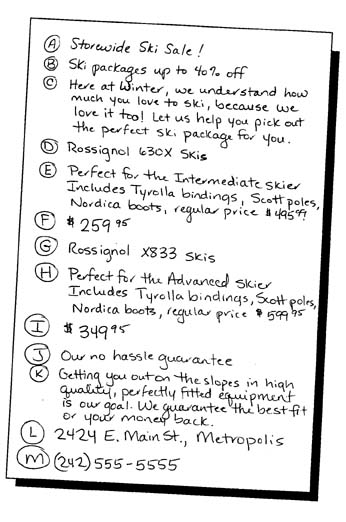 A Storewide Ski Sale!
B Ski packages up to 40% off
C Here at Winter, we understand how
much you love to ski, because we
love it too! Let us help you pick out
the perfect ski package for you.
D Rossignol 630X Skis
E Perfect for the Intermediate skier
Includes Tyrolla bindings, Scott poles,
Nordica boots, regular price $495.99
F $259 95
G Rossignol X833 Skis
H Perfect for the Advanced skier
Includes Tyrolla bindings, Scott poles,
Nordica boots, regular price $599 95
I $349 95
J Our no hassle guarantee
K Getting you out on the slopes in high
quality, perfectly fitted equipment
is our goal. We guarantee the best fit
or your money back.
L 2424 E. Main St., Metropolis
M (242) 555-5555